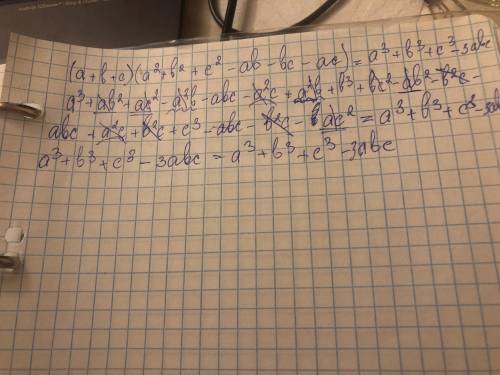 (a+b+c)(a²+b²+c²-ab-bc-ac)=a³+b³+c³-3abc
a³+ab²+ac²-a²b-abc-a²c+a²b+b³+bc²-ab²-b²c-
abc+a²c+b²c+c³-abc-bc²-ac²=a³+b³+c³-3abc
a³+b³+c³-3abc=a³+b³+c³-3abc